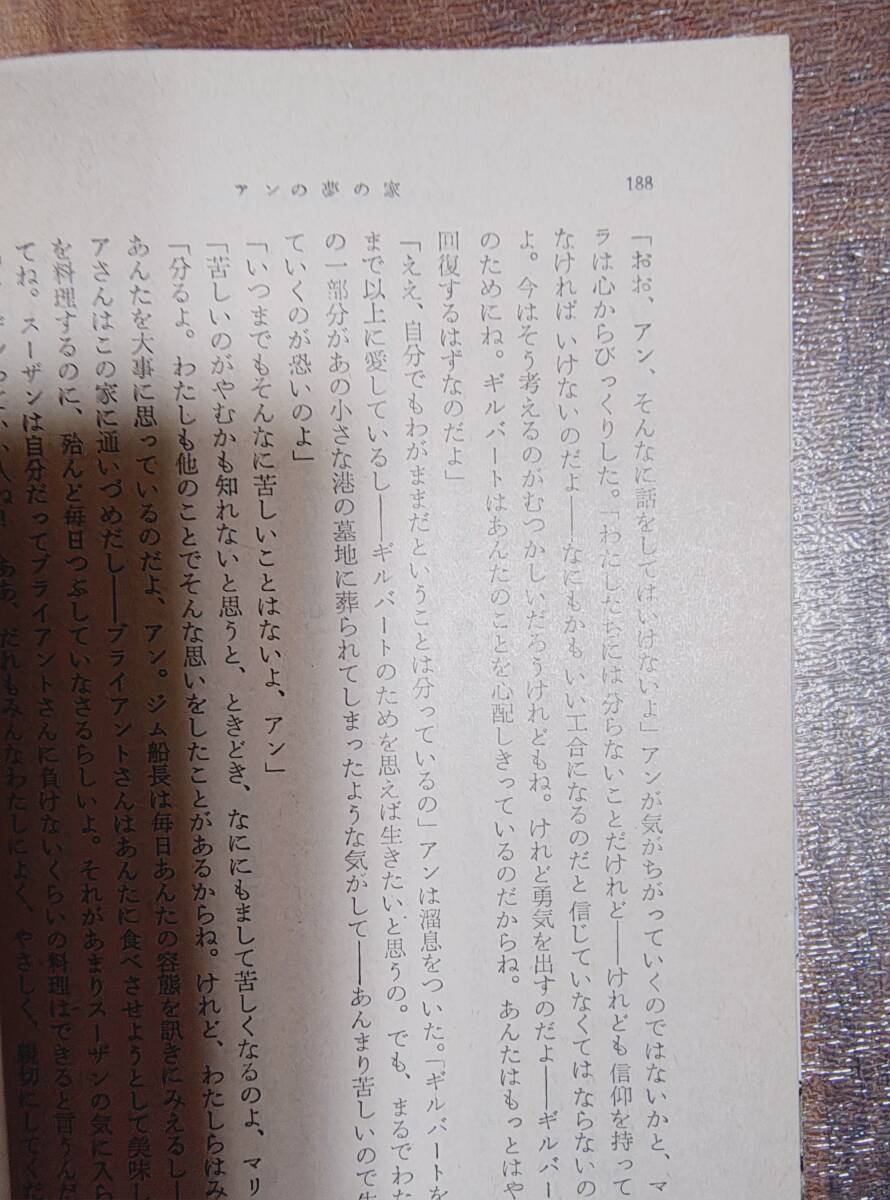 188
アンの夢の家
「おお、アン、そんなに話をしてはいけないよ」アンが気がちがっていくのではないかと、マ
ラは心からびっくりした。「わたしたちには分らないことだけれど――けれども信仰を持って
なければいけないのだよ――なにもかもいい工合になるのだと信じていなくてはならないの
よ。今はそう考えるのがむつかしいだろうけれどもね。けれど勇気を出すのだよ――ギルバー
のためにね。ギルバートはあんたのことを心配しきっているのだからね。あんたはもっとはや
回復するはずなのだよ」
「ええ、自分でもわがままだということは分っているの」アンは溜息をついた。「ギルバートを
まで以上に愛しているし――ギルバートのためを思えば生きたいと思うの。でも、まるでわた
の一部分があの小さな港の墓地に葬られてしまったような気がして――あんまり苦しいので生
ていくのが恐いのよ」
「いつまでもそんなに苦しいことはないよ、アン」
「苦しいのがやむかも知れないと思うと、ときどき、なににもまして苦しくなるのよ、マリ
「分るよ。わたしも他のことでそんな思いをしたことがあるからね。けれど、わたしらはみ
あんたを大事に思っているのだよ、アン。ジム船長は毎日あんたの容態を訊きにみえるし―
アさんはこの家に通いづめだし――ブライアントさんはあんたに食べさせようとして美味し
を料理するのに、殆んど毎日つぶしていなさるらしいよ。それがあまりスーザンの気に入ら
てね。スーザンは自分だってブライアントさんに負けないくらいの料理はできると言うんだ
ああ、だれもみんなわたしによく、やさしく、親切にしてくだ